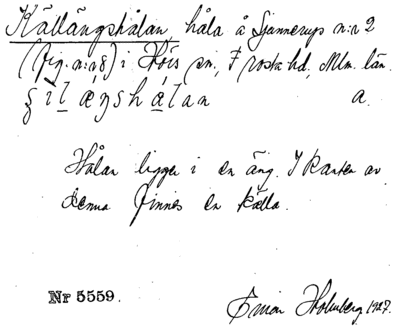 Källängshålan, håla å Gannerups n:r 2
(fig. n:r 8) i Höis sn, Frosta hd, Mlm. län.
a.
Hålan ligger i en äng. I kanten av
denna finnes en källa.
Nr 5559.
Einar Holmberg 1927.